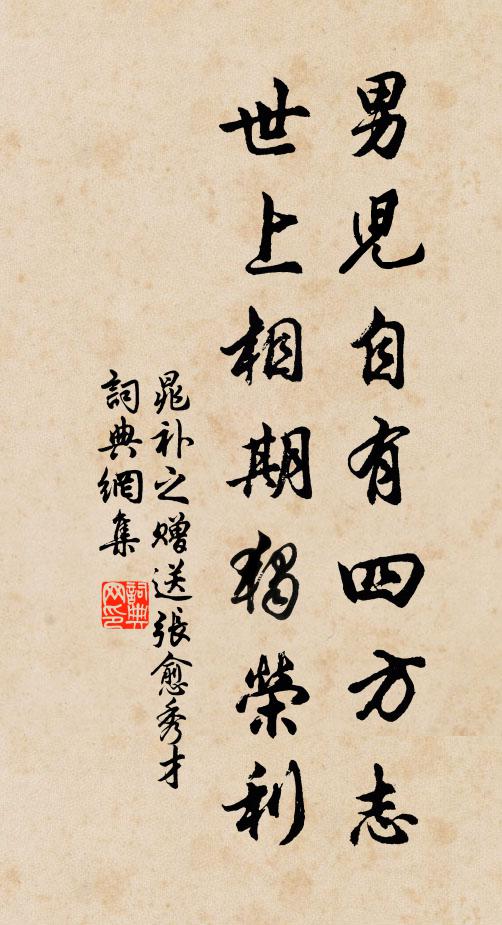 男児自有四方志
世上相期獨榮利
晁补之贈送張愈秀才
詞典網集
詞典
网印